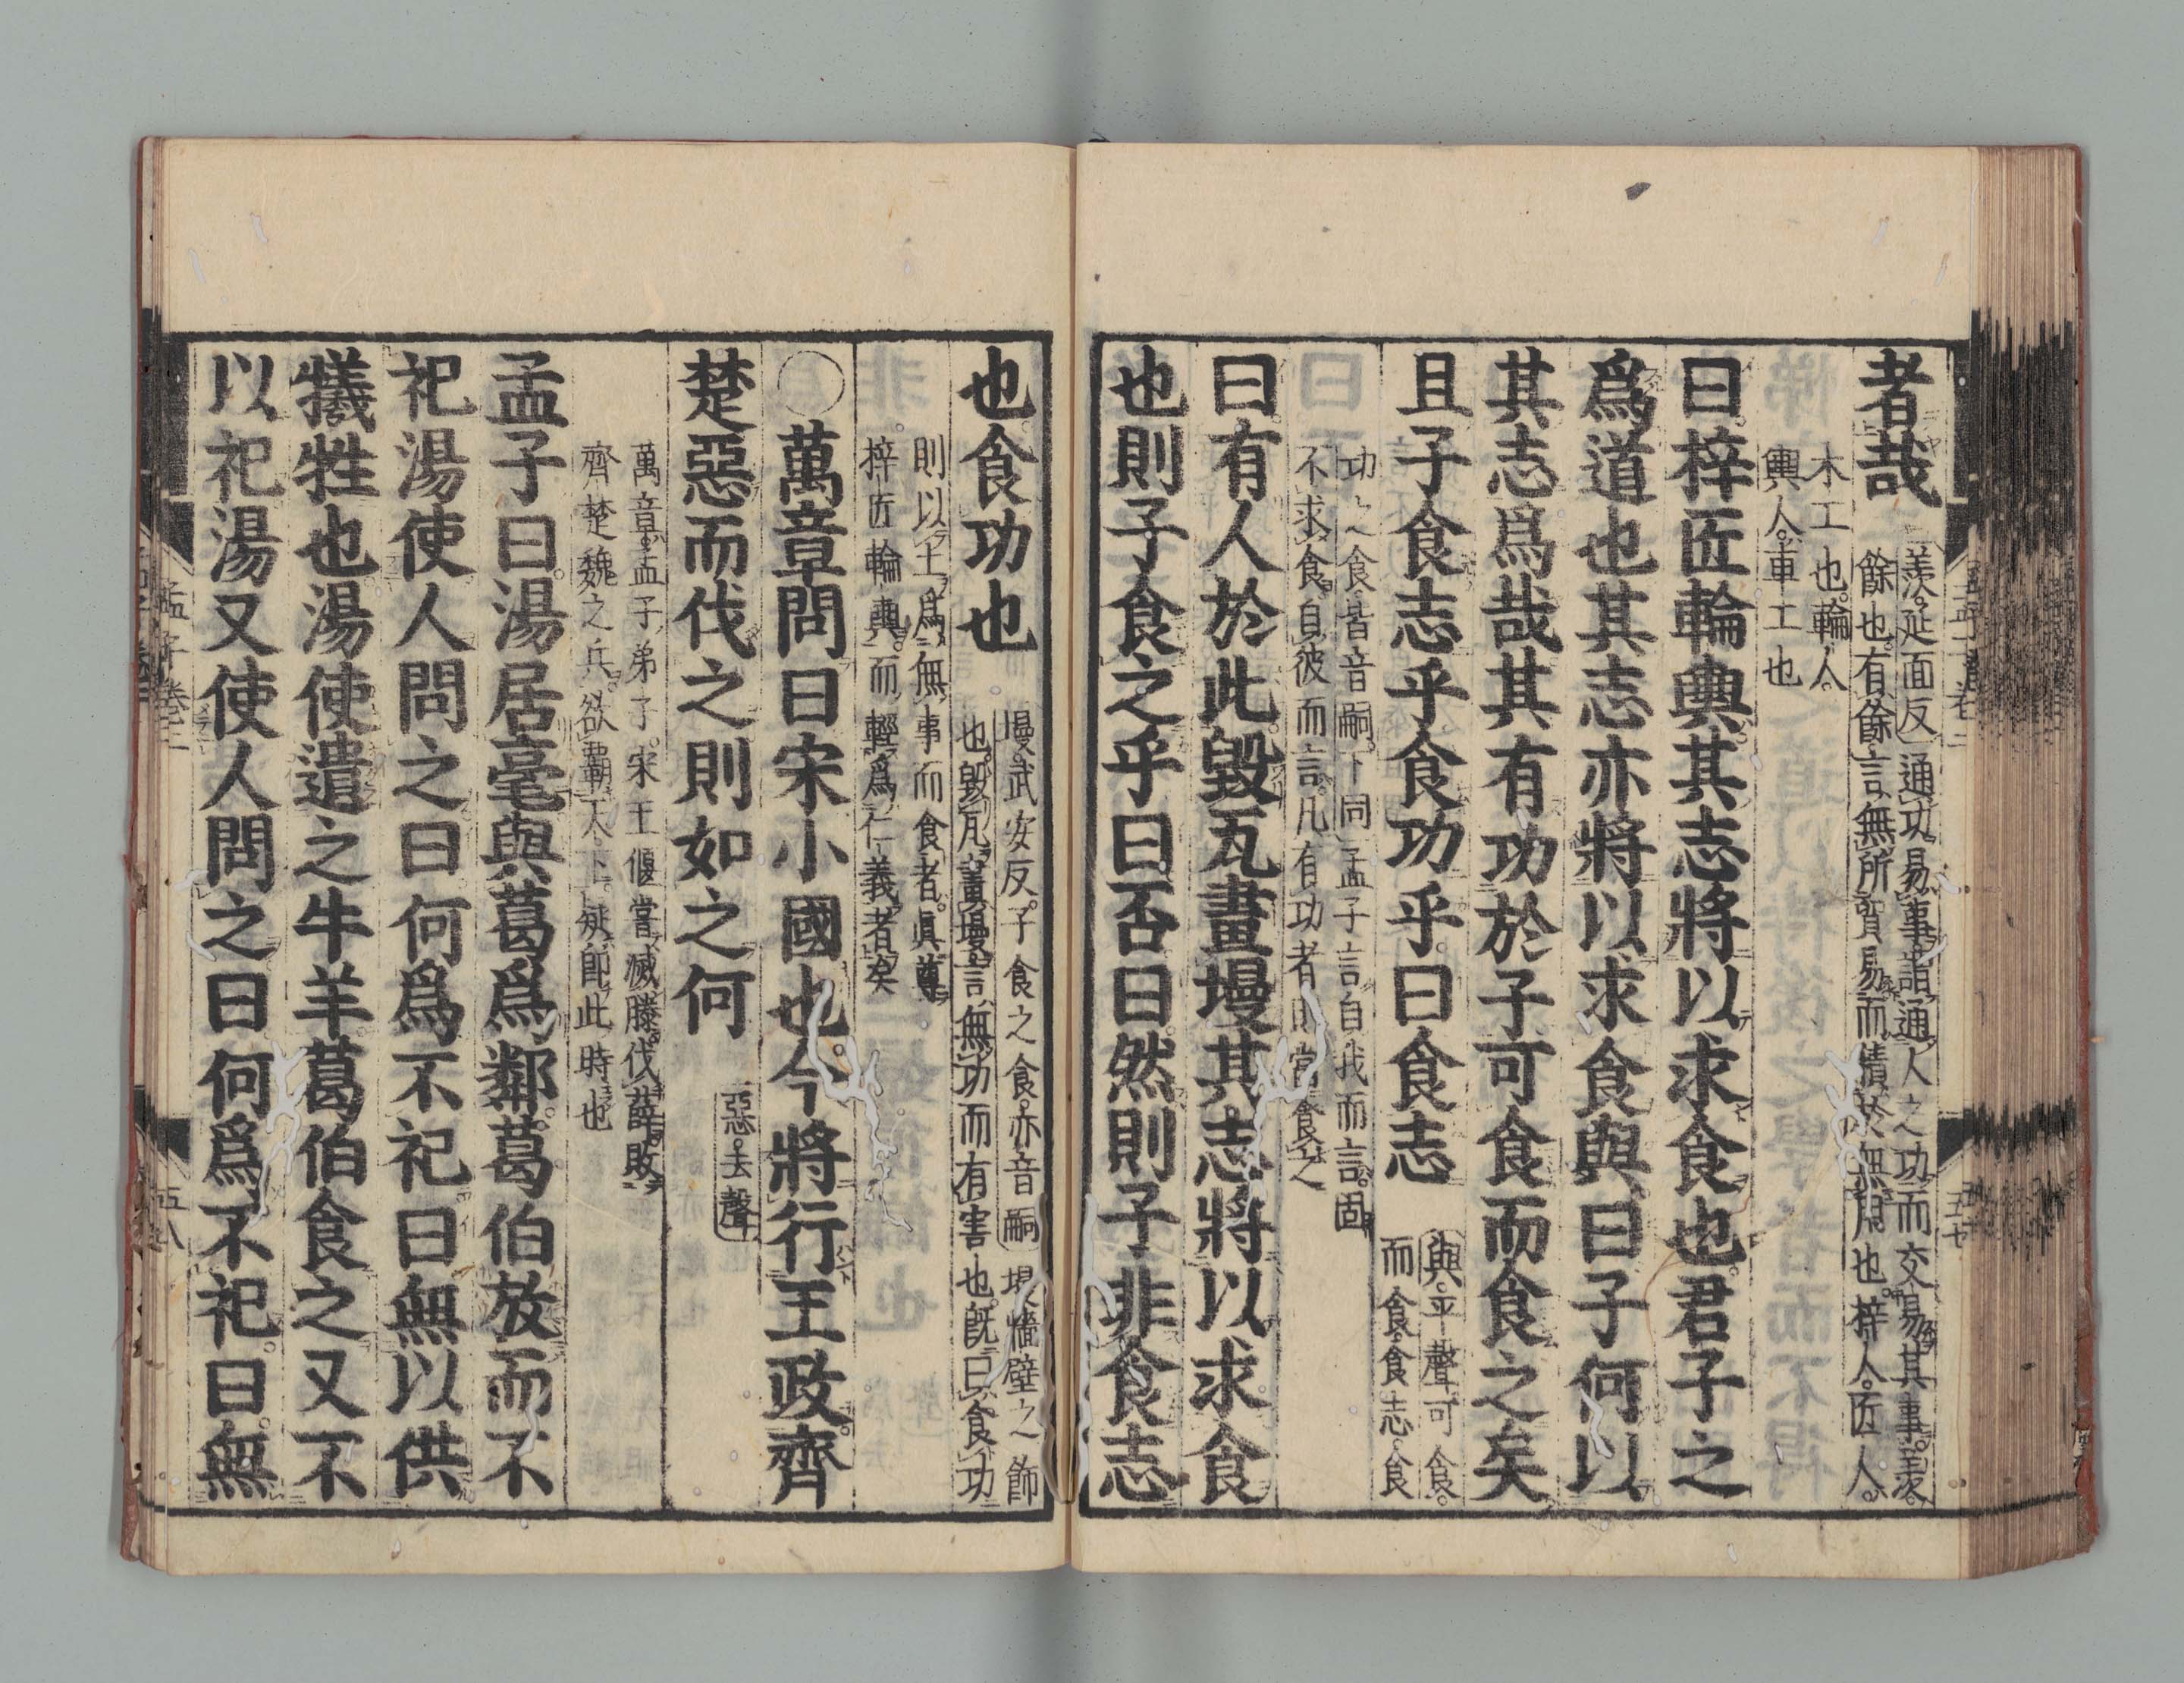 者哉
羨延面反通功易事謂通人之功而交易其事羨
餘也有餘言無所貿易而積於無用也梓人匠人
木工也輪人
輿人車工也
曰梓匠輪輿其志將以求食也君子之
爲道也其志亦將以求食與曰子何以
其志爲哉其有功於子可食而食之矣
且子食志乎食功乎曰食志
與平聲可食
而食食志食
功之食皆音嗣下同孟子言自我而言固
不求食自彼而言凡有功者則當食之
曰有人於此毀瓦畫墁其志將以求食
也則子食之乎曰否曰然則子非食志
也食功也
墁武安反子食之食亦音嗣墁牆壁之飾
也毀瓦畫墁言無功而有害也旣曰食功
則以士爲無事而食者眞尊
梓匠輪輿而輕爲仁義者矣
○萬章問曰宋小國也今將行王政齊
楚惡而伐之則如之何
惡去聲
萬章孟子弟子宋王偃嘗滅滕伐薛敗
齊楚魏之兵欲霸天下疑卽此時也
孟子曰湯居亳與葛爲鄰葛伯放而不
祀湯使人問之曰何爲不祀曰無以供
犧牲也湯使遺之牛羊葛伯食之又不
以祀湯又使人問之曰何爲不祀曰無
孟子卷三
五八